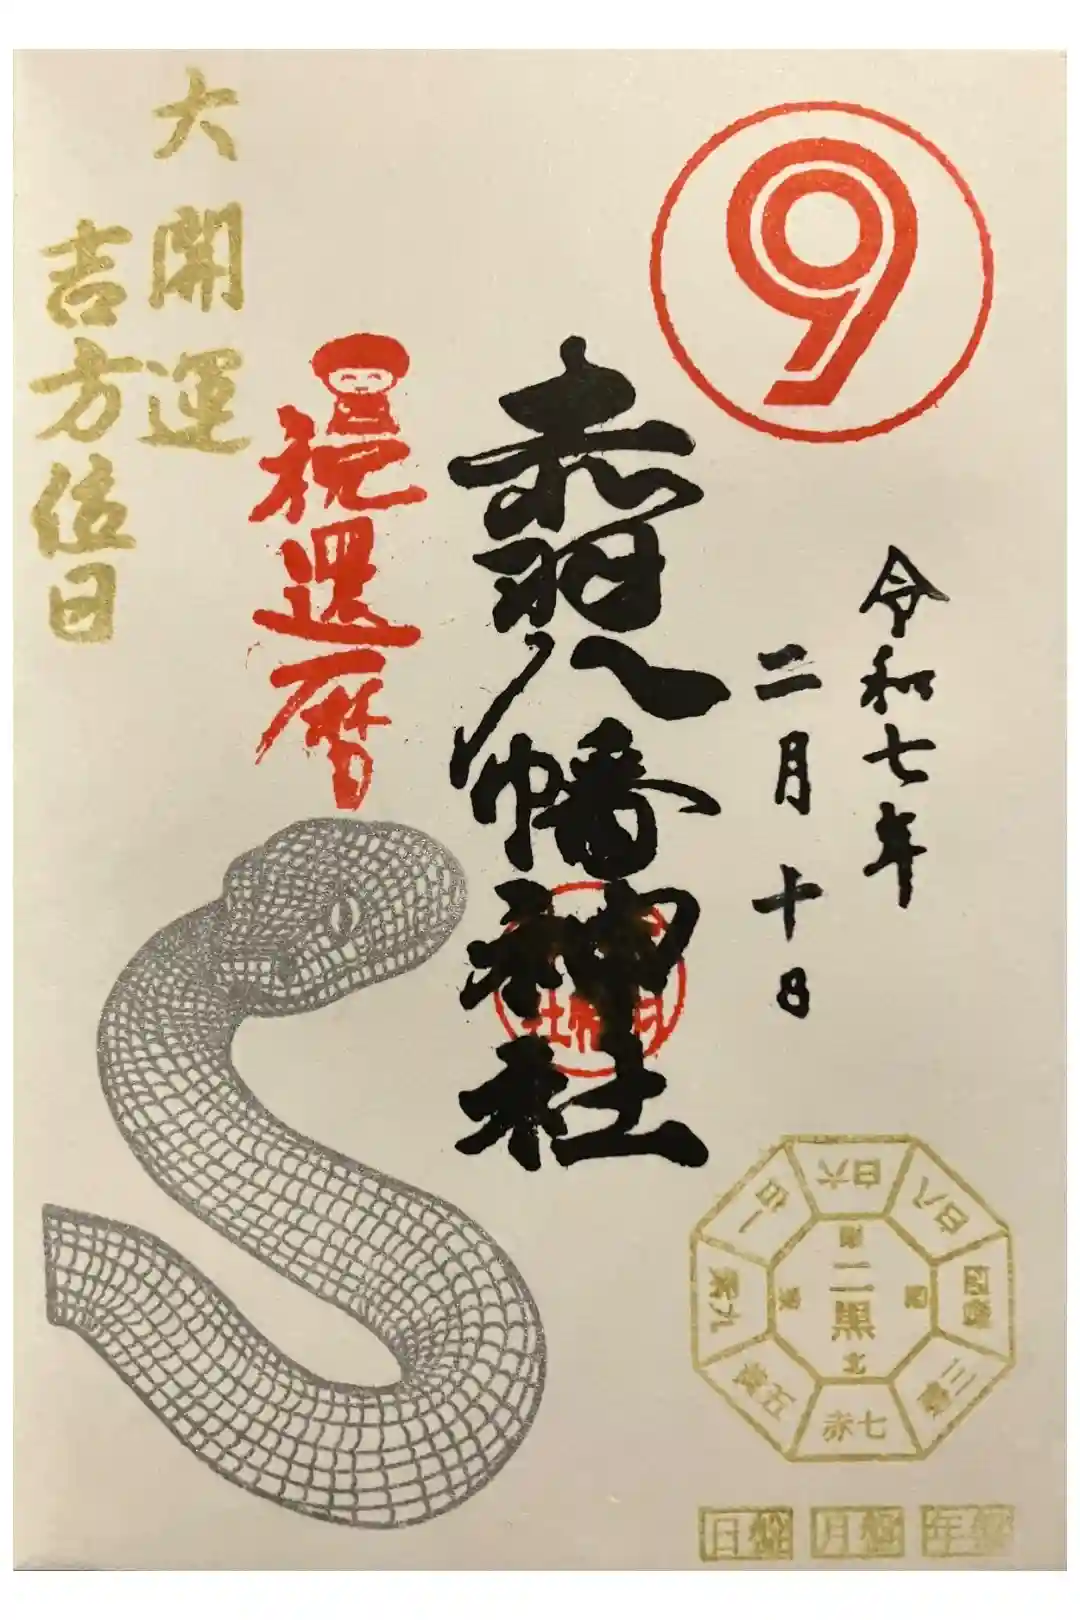 9
令和七年
二月十日
赤羽八幡神社
祝還暦
大開運
吉方位日
一白
白六
八白
四緑
三碧
赤七
五黄
紫九
南
東
西
北
二黒
日盤
月盤
年盤